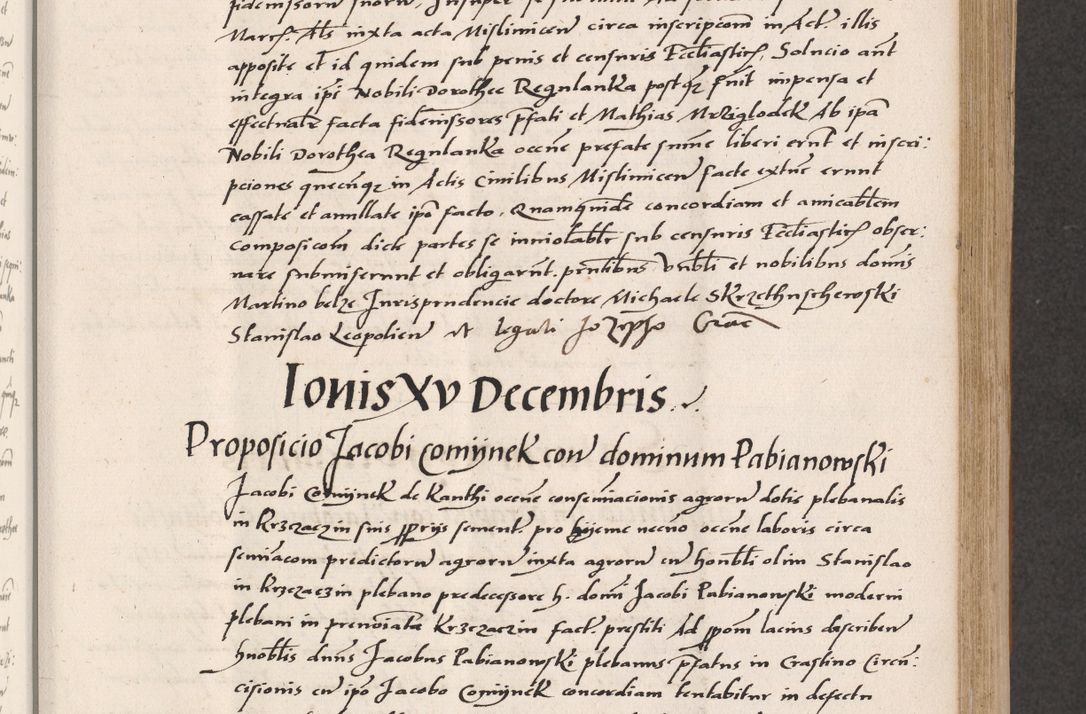 Marcs. Als iuxta acta Mislimicen circa inscripcom in Act. illis
apposite et id quidem sub penis et censuris Ecclîasticis, Solucio ant
integra ipi Nobili Dorothee Regulanka postqz fuit impensa et
effectualr facta fideiussores pfati et Mathias Mrziglodek Ab ipa
Nobili Dorothea Regulanka occne prefate sume liberi erut et inscri:
pciones quecuqz in Actis Ciuilibus Mislimicen facte extue erunt
cassate et anullate ipo facto. Quamquide concordiam et amicablem
composicom dicte partes se inuiolablr sub censuris Eccliasticis obser:
uare submiserunt et obligarut. pntibus Vnbli et nobilibus domis
Martino belze Jurisprudencie doctore Michaele Skrzethuschewski
Stanislao Leopolien et legali Jozepho Crac
Iouis XV Decembris
Proposicio Jacobi Comijnek con dominum Pabianowski
Jacobi Comijnek de Kanthi occne conseminacionis agrorum dotis plebanalis
in Krzczaczin suis pprijs sement. pro hijeme necno occne laboris circa
semiacom predictorum agrorum iuxta agrorum cu honbli olim Stanislao
in Krzczaczin plebano predecessore h. domi Jacobi Pabianowski moderni
plebani in prenoiata Krzczaczin fact. prestiti Ad ppom lacius describen
hnoblis dnus Jacobus Pabianowski plebanus pfatus in Crastino Circu:
cisionis cu ipo Jacobo Comijnek concordiam tentabitur in defectu